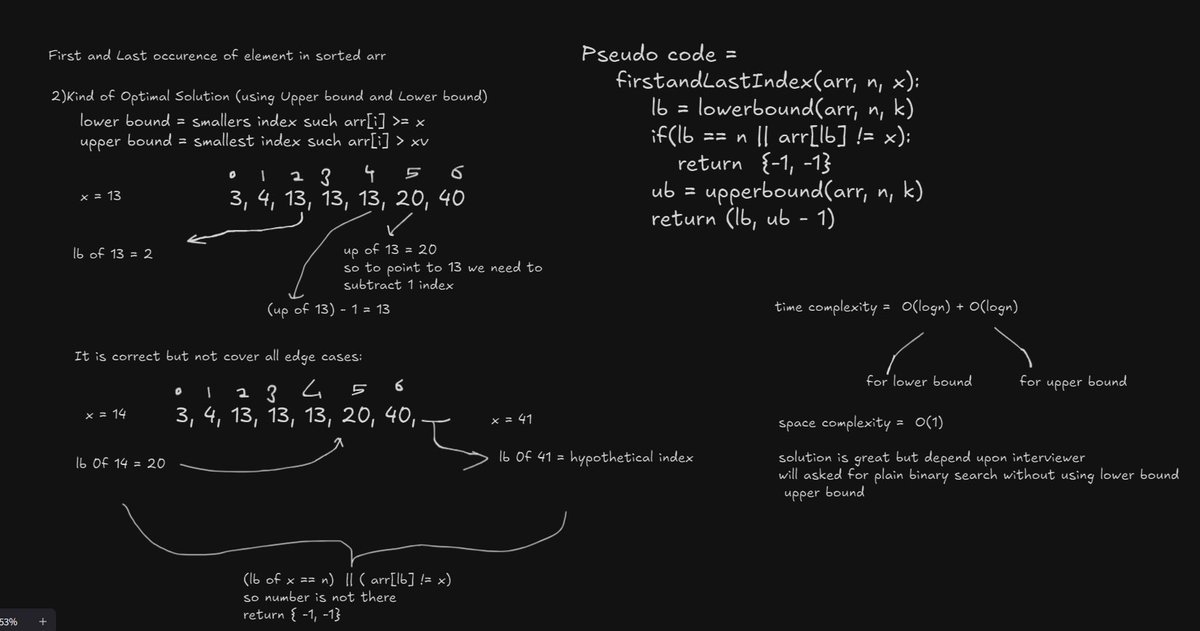 First and Last occurence of element in sorted arr
2)Kind of Optimal Solution (using Upper bound and Lower bound)
lower bound = smallers index such arr[i] >= x
upper bound = smallest index such arr[i] > xv
0 1 2 3 4 5 6
x = 13
3, 4, 13, 13, 13, 20, 40
lb of 13 = 2
up of 13 = 20
so to point to 13 we need to
subtract 1 index
(up of 13) - 1 = 13
It is correct but not cover all edge cases:
0 1 2 3 4 5 6
x = 14
3, 4, 13, 13, 13, 20, 40,
x = 41
lb Of 14 = 20
lb Of 41 = hypothetical index
(lb of x == n) || ( arr[lb] != x)
so number is not there
return { -1, -1}
Pseudo code =
firstandLastIndex(arr, n, x):
lb = lowerbound(arr, n, k)
if(lb == n || arr[lb] != x):
return {-1, -1}
ub = upperbound(arr, n, k)
return (lb, ub - 1)
time complexity = O(logn) + O(logn)
for lower bound
for upper bound
space complexity = O(1)
solution is great but depend upon interviewer
will asked for plain binary search without using lower bound
upper bound
53% +